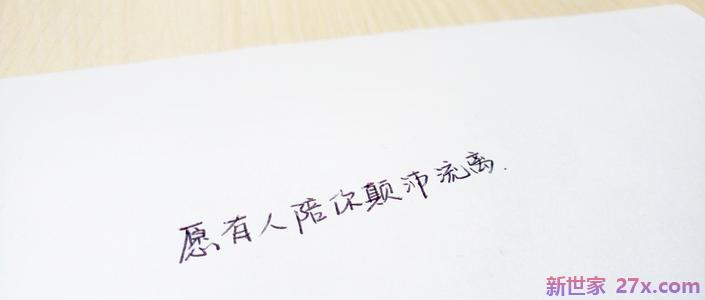 愿有人陪你颠沛流离.
新世家 27x.com